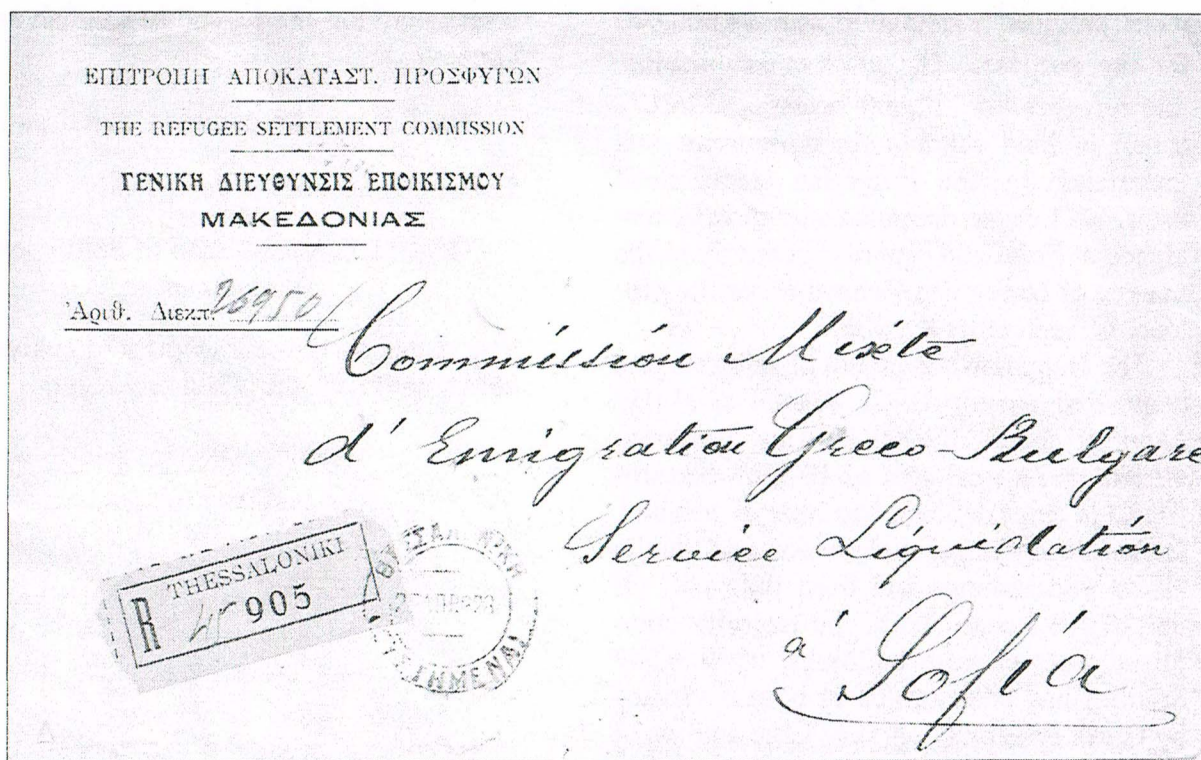 ΕΠΙΤΡΟΠΗ ΑΠΟΚΑΤΑΣΤ. ΠΡΟΣΦΥΓΩΝ
THE REFUGEE SETTLEMENT COMMISSION
ΓΕΝΙΚΗ ΔΙΕΥΘΥΝΣΙΣ ΕΠΟΙΚΙΣΜΟΥ
ΜΑΚΕΔΟΝΙΑΣ
Ἀριθ. Διεκπ. 26950/
Commission Mixte
d' Emigration Greco-Bulgare
Service Liquidation
à Sofia
R THESSALONIKI
905